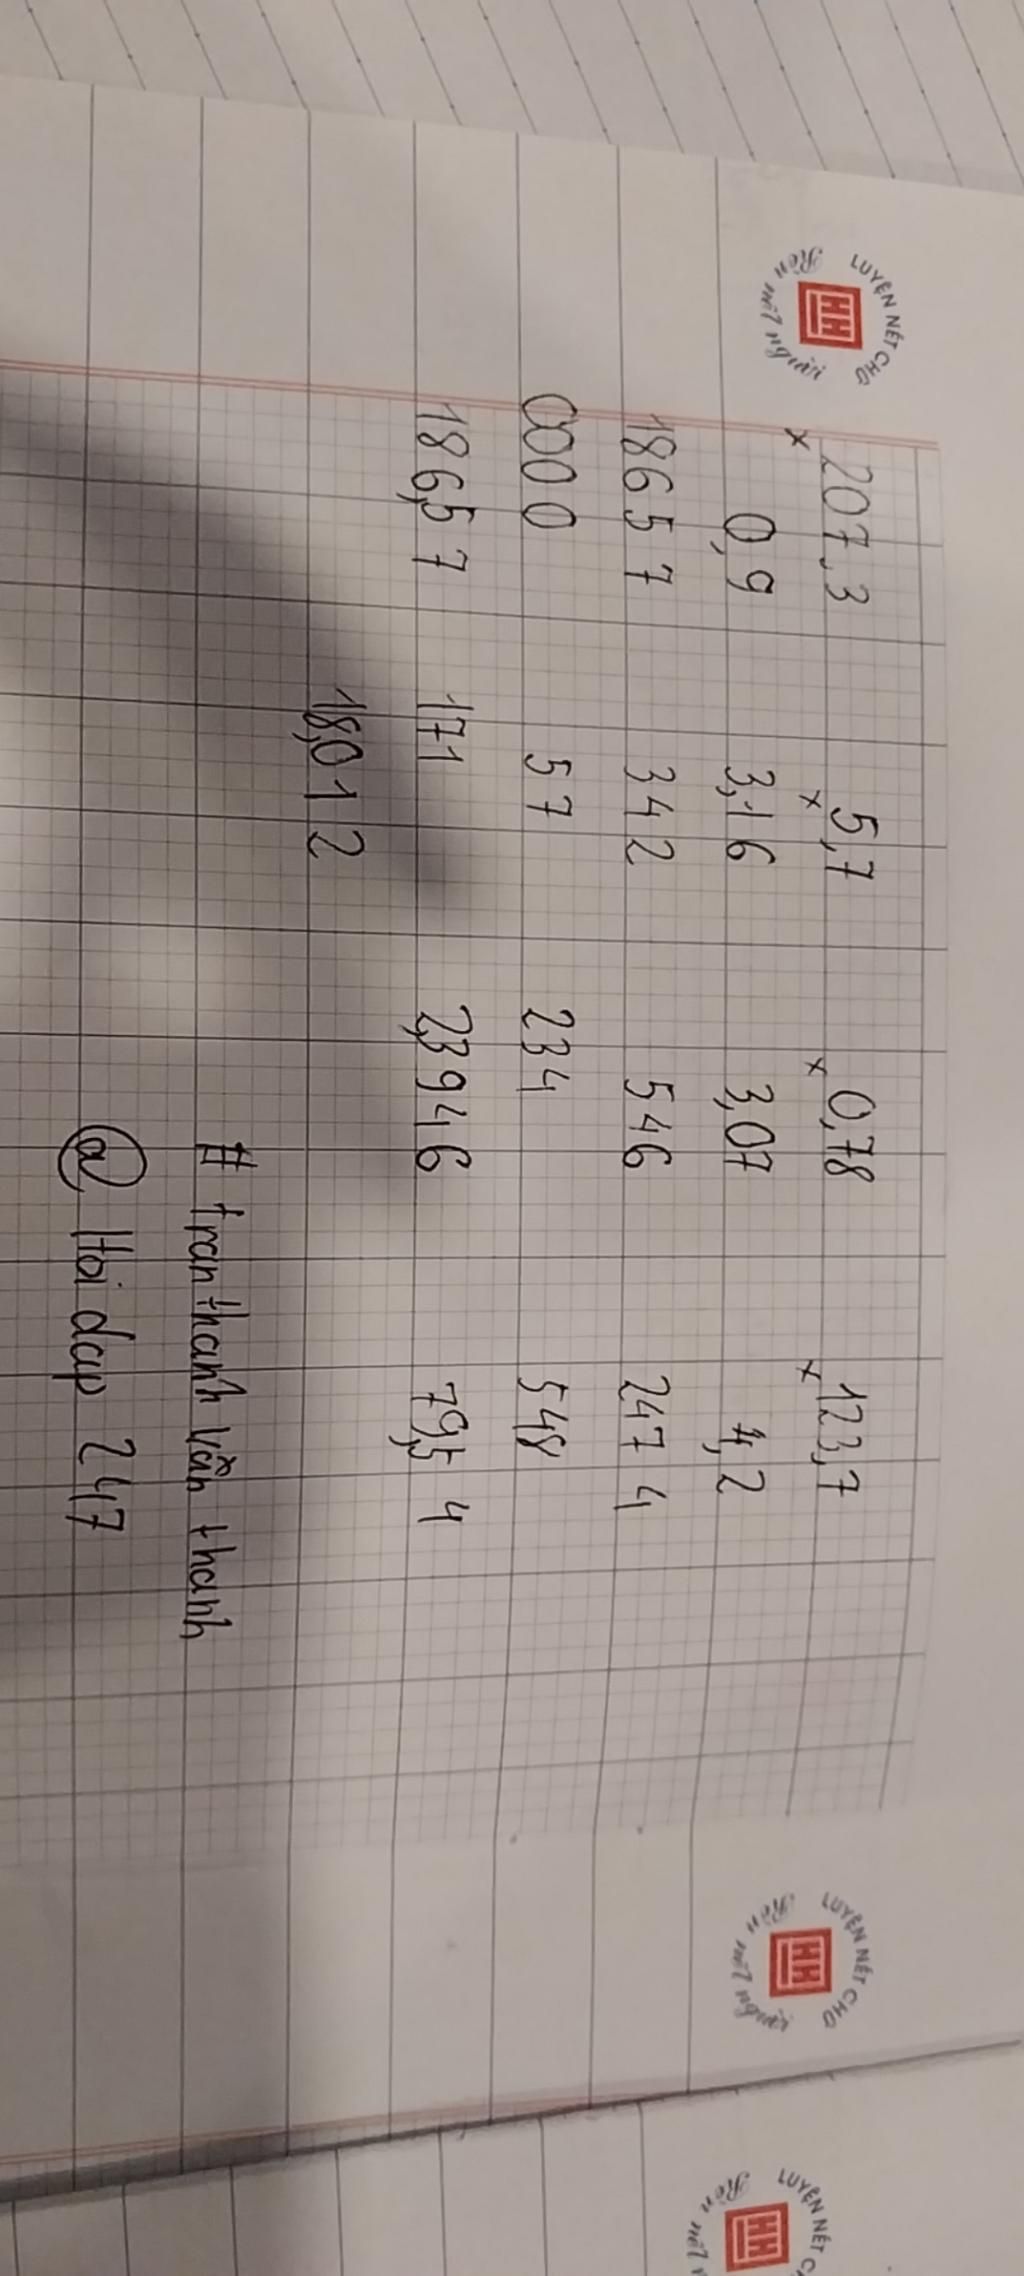 LUYỆN NÉT CHỮ
Rèn nết người
HH
× 207,3 × 5,7 × 0,78 × 123,7
0,9 3,16 3,07 4,2
18657 342 546 2474
0000 57 234 548
186,57 171 2,3946 79,54
18,012
# tran thanh vân thanh
@ Hoi dap 247
LUYỆN NÉT CHỮ
Rèn nết người
HH
LUYỆN NÉT C
Rèn nết
HH